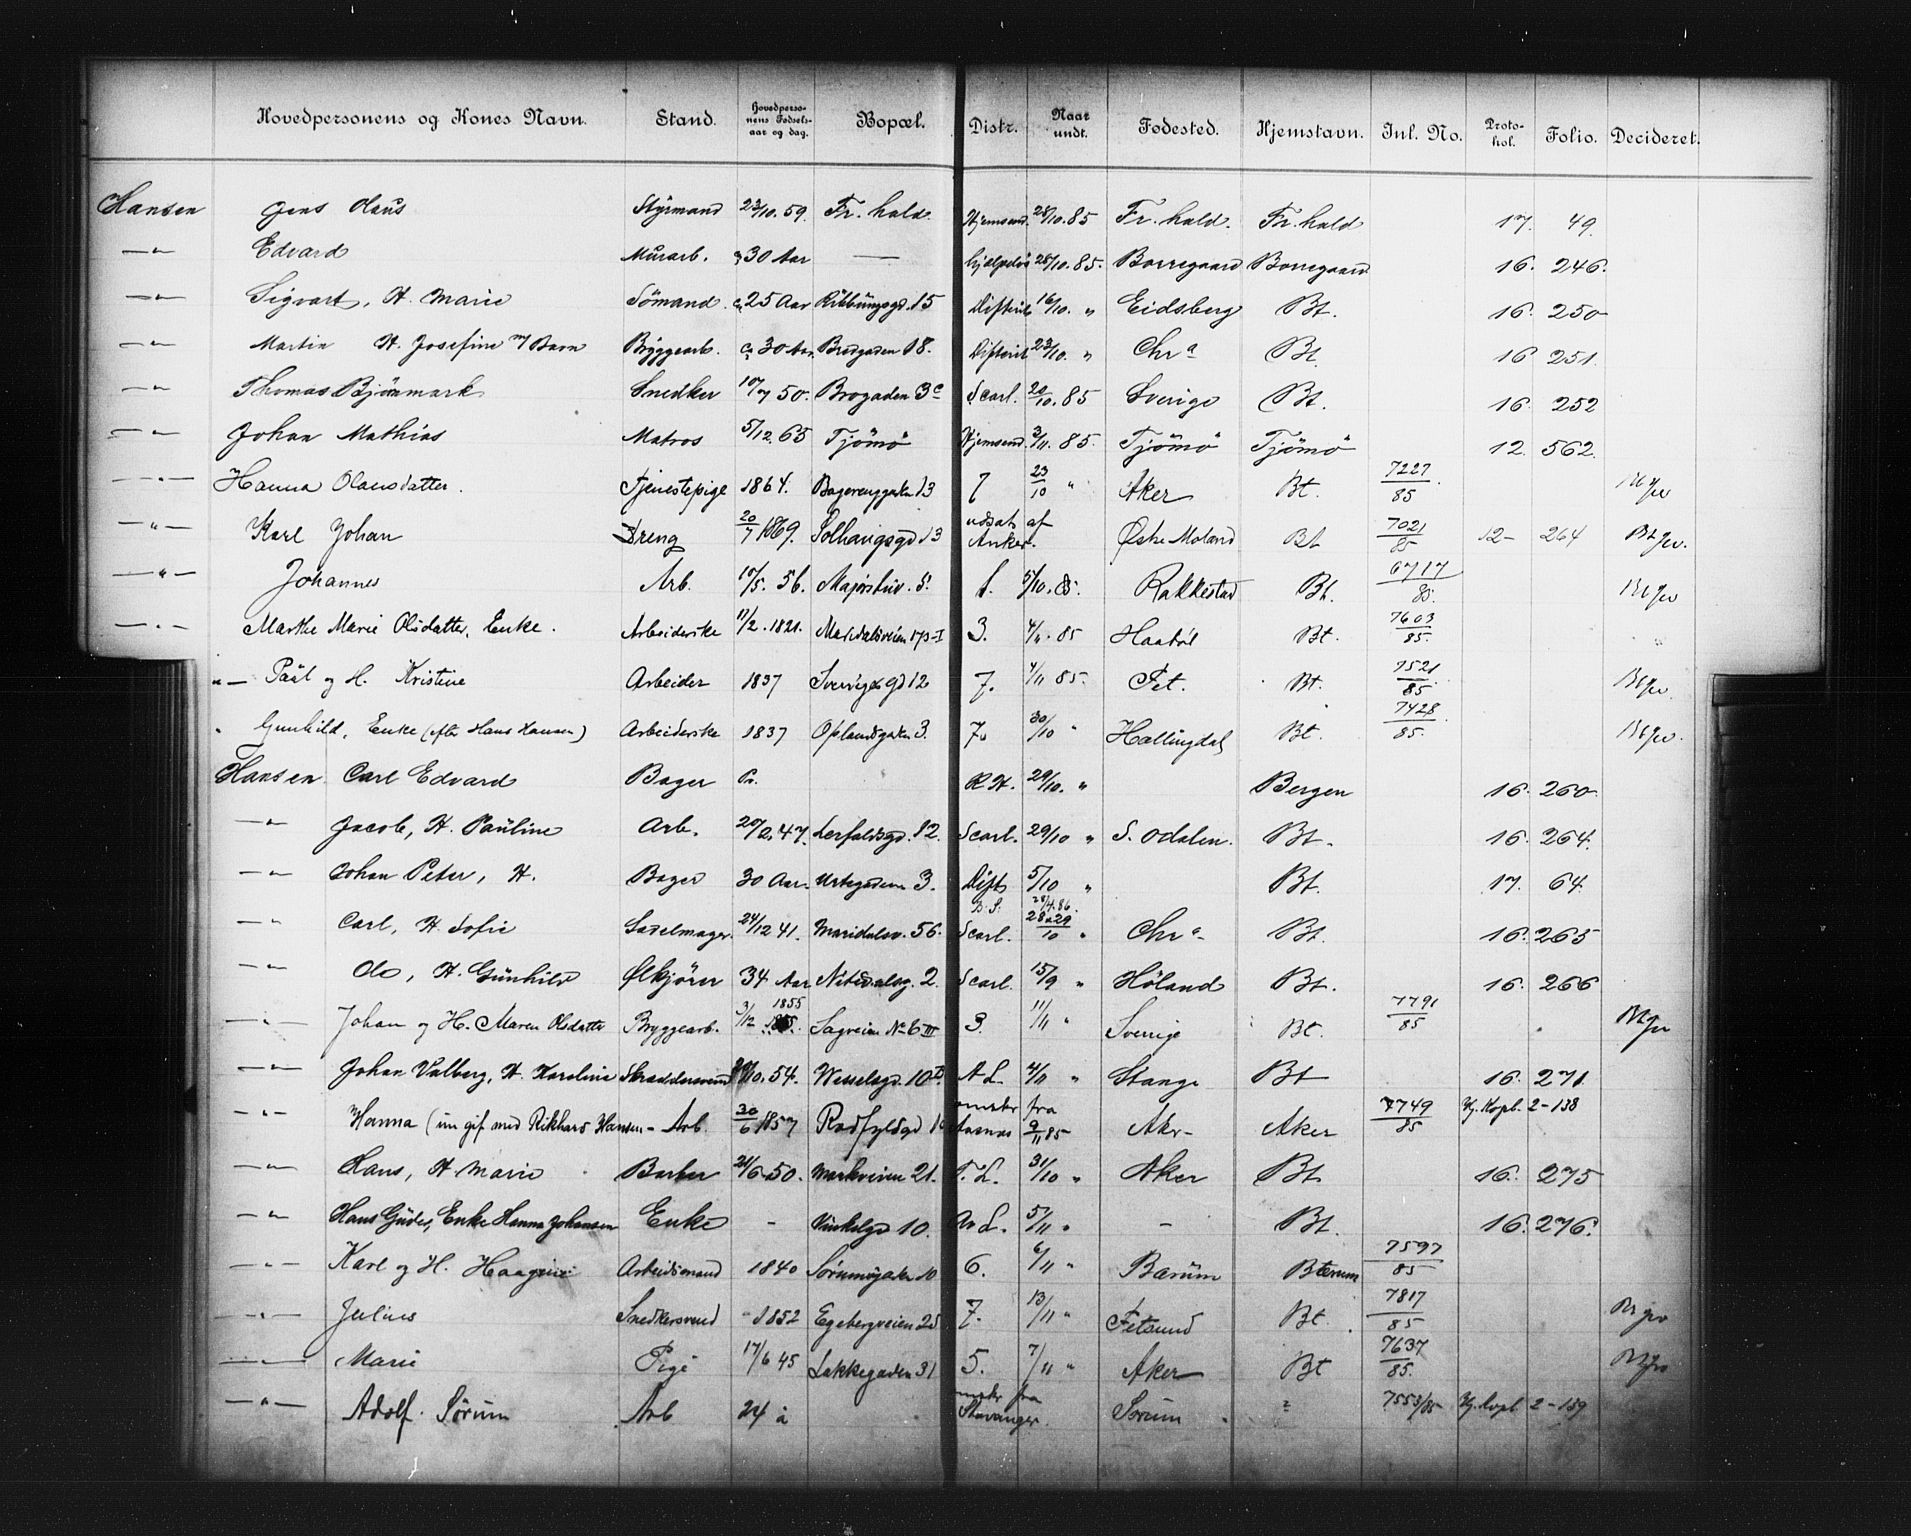 Hovedpersonens og Kones Navn. Stand. Hovedperso-nens Fødsels-aar og dag. Bopæl. Distr. Naar undt. Fødested. Hjemstavn. Inl. No. Proto-kol. Folio. Decideret.
Hansen Jens Olaus Styrmand 23/10.59. Fr.hald. Hjemsend. 28/10.85 Fr.hald. Fr.hald 17. 49.
—"— Edvard Murarb. 30 Aar — hjælpeløs 28/10.85. Borregaard Borregaard 16. 246.
—"— Sigvart, H. Marie Sømand. 25 Aar 15 Difterit 16/10. " Eidsberg Bt. 16. 250
—"— Martin H. Josefine m/ Barn Bryggearb. ca 30 Aar Bredgaden 18. Difterit 23/10. " Chra Bt. 16 251.
—"— Thomas Bjørnmark Snedker 50. Brogaden 3c Scarl. 20/10.85 Sverige Bt. 16. 252
—"— Johan Mathias Matros 5/12 65 Tjømø Hjemsend. 3/11. 85. Tjømø Tjømø 12. 562.
—"— Hanna Olausdatter. Tjenestepige 1864. 13 7 23/10 " Aker Bt. 7227/85 Bt gv
—"— Karl Johan Dreng 20/7 1869. Solhaugsgd 13 udsat af Anker. Østre Moland Bt 7021/85 12- 264 Bt gv.
—"— Johannes Arb. 56. Majorstuv. 5. 1. 5/10. 85. Rakkestad Bt. 6717/85. Bt gv
—"— Marthe Marie Olsdatter, Enke. Arbeiderske 17/2.1821. Maridalsveien 173-I 3. 4/11.85 Haabøl Bt. 7603/85. "
"— Paal og H. Kristine Arbeider 1837 Sverigesgd 12 7. 4/11 85. Fet. Bt. 7521/85. Bt gv.
" Gunhild, Enke (efter Hans Hansen) Arbeiderske 1837 Oplandsgaden 3. 7. 30/10 " Hallingdal Bt. 7428/85. Bt gv.
Hansen Carl Edvard Bager R.H. 29/10. " Bergen 16. 260.
—"— Jacob, H. Pauline Arb. 20/2.47. Lerfaldsgd. 82. Scarl. 29/10 " S. Odalen. Bt. 16. 264.
—"— Johan Peter, H. Bager 30 Aar. Urtegaden 3. Difts 5/10 " Bt. 17. 64.
—"— Carl, H. Sofie Sadelmager. 24/12 41. Maridalsv. 56. B.S. 28/4.86. Scarl. 28 & 29/10 " Chra Bt. 16. 265
—"— Ole, H. Gunhild Ølkjører 34 Aar Nitedalsg. 2. Scarl. 15/9 " Høland Bt. 16. 266
—"— Johan og H. Maren Olsdatter Bryggearb. 3/12 1855 Sagveien No 6 III 3. 11/11 " Sverige Bt. 7791/85 Bt gv
—"— Johan Valberg, H. Karoline Skræddersvend 54. Wesselsgd. 10 A.L. 4/11 " Stange Bt 16. 271.
—"— Hanna (ny gif med Rikhard Hansen - Arb. 30/6 1857 Rosfyldgd fra Aasnæs 9/11 85 Aker Aker 7749/85 Kopb. 2-138
—"— Hans, H. Marie Barber 21/6.50. Markveien 21. T.L. 31/10 " Aker Bt 16. 275
—"— Hans Gudes, Enke Hanna Johansen Enke - Vinkelgd 10. A.L. 5/11 " - Bt. 16. 276.
—"— Karl og H. Haagine Arbeidsmand 1840 Sørumsgaden 10 6. 6/11 " Bærum Bærum 7597/85
—"— Julius Snedkersvend 1852 Egebergveien 25 7. 13/11 " Fetsund Bt. 7817/85 Bt gv
—"— Marie Pige 17/6 45 Lakkegaden 31 5. 7/11 " Aker Bt 7637/85. Bt gv
—"— Adolf Sørum Arb 24 å fra Stavanger. Sørum " 7553/85 Kopb 2-139